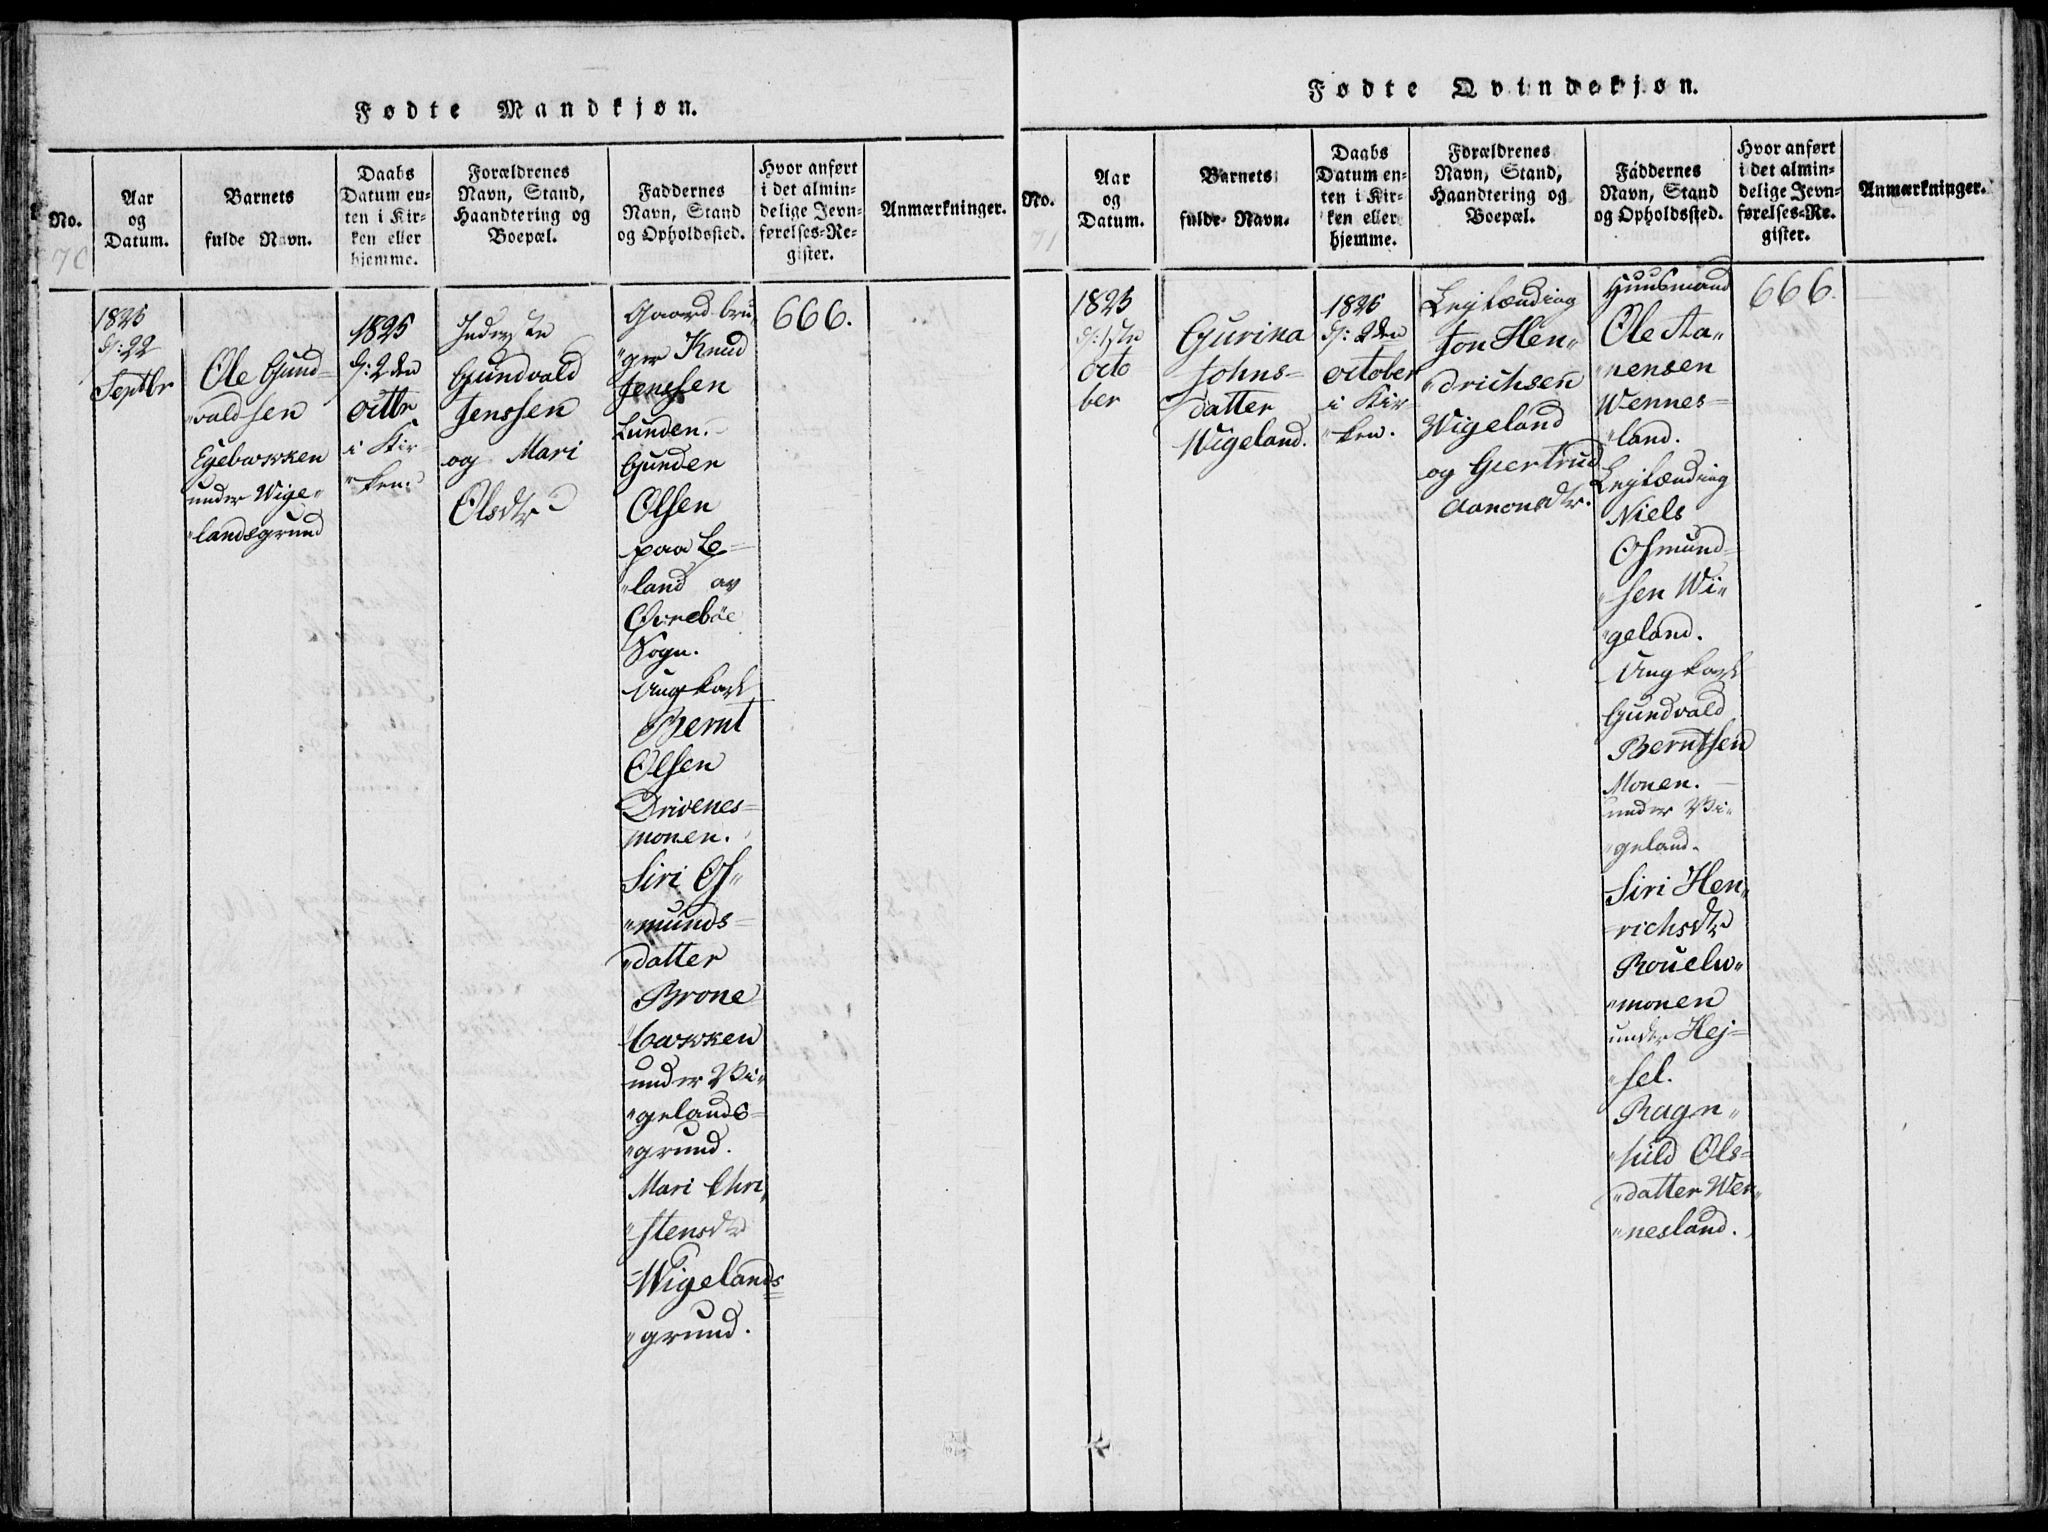 Fødte Mandkjøn.
No.
Aar
og
Datum.
Barnets
fulde Navn.
Daabs
Datum en-
ten i Kir-
ken eller
hjemme.
Forældrenes
Navn, Stand,
Haandtering og
Boepæl.
Faddernes
Navn, Stand
og Opholdssted.
Hvor anført
i det almin-
delige Jevn-
førelses-Re-
gister.
Anmærkninger.
70
1825
d: 22
Septbr
Ole Gund-
valdsen
Egebakken
under Wige-
landsgrund
1825
d: 2den
octbr
i Kir-
ken.
Inderste
Gundvald
Jenssen
og Mari
Olsdtr
Gaardbru-
ger Knud
Jenssen
Lunden.
Gunder
Olsen
paa Le-
land av
Øvrebøe
Sogn.
Ungkarl
Bernt
Olsen
Drivenes-
monen.
Siri Os-
munds-
datter
Brone
backken
under Vi-
gelands-
grund.
Mari Chri-
stensdtr
Wigelands-
grund.
666.
Fødte Qvindekjøn.
No.
Aar
og
Datum.
Barnets
fulde Navn.
Daabs
Datum en-
ten i Kir-
ken eller
hjemme.
Forældrenes
Navn, Stand,
Haandtering og
Boepæl.
Faddernes
Navn, Stand
og Opholdssted.
Hvor anført
i det almin-
delige Jevn-
førelses-Re-
gister.
Anmærkninger.
71
1825
d: 1ste
octo
ber
Gurina
Johns-
datter
Wigeland.
1825
d: 2den
october
i Kir-
ken.
Lejlænding
Jon Hen-
drichsen
Wigeland
og Giertrud
Aanonsdtr.
Huusmand
Ole Aa-
nensen
Wennes-
land.
Lejlænding
Niels
Osmund-
sen Wi-
geland.
Ungkarl
Gundvald
Berntsen
Monen.
under Vi-
geland.
Siri Hen-
richsdtr
monen
under Hej-
sel.
Ragn-
hild Ols-
datter Wen-
nesland.
666.